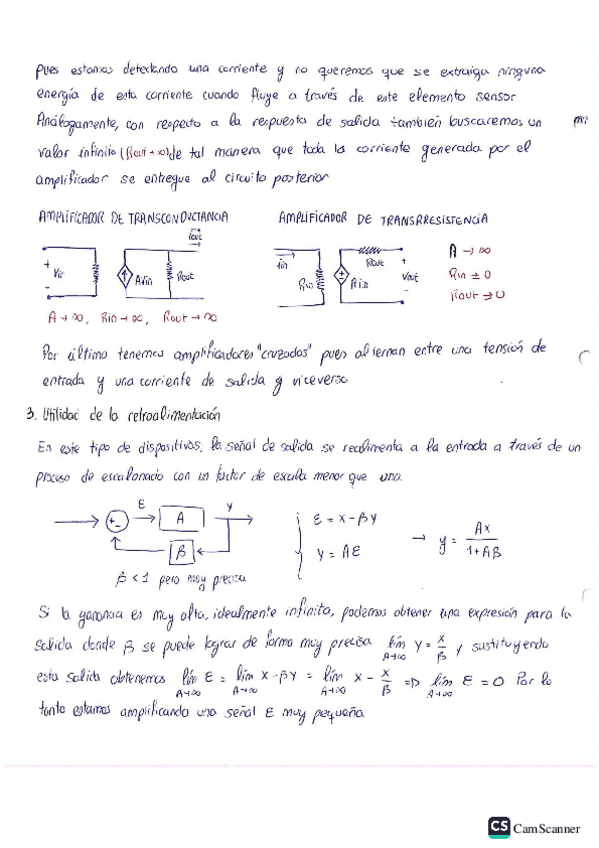 pues estamos detectando una corriente y no queremos que se extraiga ninguna
energía de esta corriente cuando fluye a través de este elemento sensor
Análogamente, con respecto a la respuesta de salida también buscaremos un
valor infinito (Rout→∞) de tal manera que toda la corriente generada por el
amplificador se entregue al circuito posterior
AMPLIFICADOR DE TRANSCONDUCTANCIA
AMPLIFICADOR DE TRANSRRESISTENCIA
iout
+
Vin
-
AVin
Rout
A→∞, Rin→∞, Rout→∞
iin
Rin
Rout
+
-
Aiin
+
Vout
-
A → ∞
Rin → 0
Rout → 0
Por último tenemos amplificadores "cruzados" pues alternan entre una tensión de
entrada y una corriente de salida y viceversa
3. Utilidad de la retroalimentación
En este tipo de dispositivos, la señal de salida se realimenta a la entrada a través de un
proceso de escalonacio con un factor de escala menor que uno.
+
-
E
A
Y
β
β < 1 pero muy precisa
E = X - βY
Y = AE
→ y = Ax / 1+AB
Si la ganancia es muy alta, idealmente infinita, podemos obtener una expresión para la
salida donde β se puede lograr de forma muy precisa lím A→∞ Y = x/β y sustituyendo
esta salida obtenemos lím A→∞ E = lím A→∞ X - βY = lím A→∞ X - X/β => lím A→∞ E = 0 Por lo
tanto estamos amplificando una señal E muy pequeña
CS CamScanner